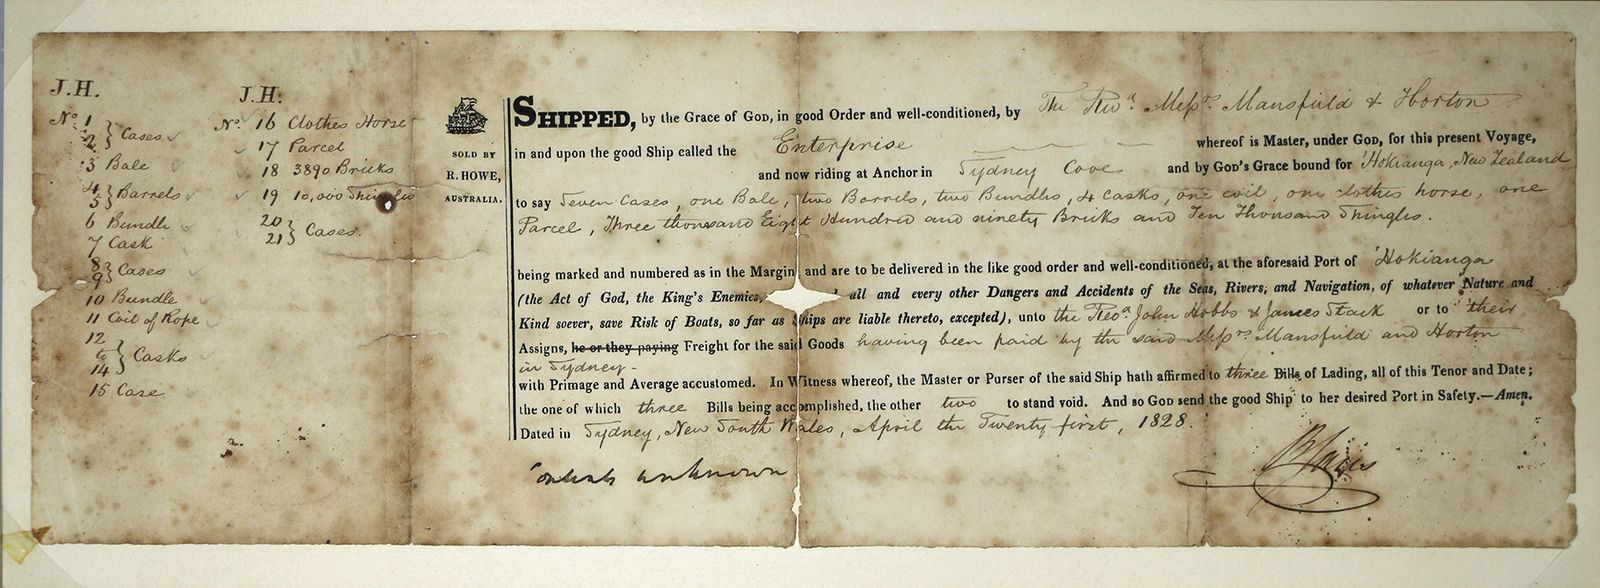 J.H.
No. 1
2 } Cases
3 Bale
4
5 } Barrels
6 Bundle
7 Cask
8
9 } Cases
10 Bundle
11 Coil of Rope
12
to
14 } Casks
15 Case
J.H.
No. 16 Clothes Horse
17 Parcel
18 3890 Bricks
19 10,000 Shingles
20
21 } Cases.
SOLD BY
R. HOWE,
AUSTRALIA.
SHIPPED, by the Grace of GOD, in good Order and well-conditioned, by The Revd. Messrs Mansfield & Horton
in and upon the good Ship called the Enterprise whereof is Master, under GOD, for this present Voyage,
and now riding at Anchor in Sydney Cove and by GOD'S Grace bound for Hokianga, New Zealand
to say Seven Cases, one Bale, two Barrels, two Bundles, 4 Casks, one coil, one clothes horse, one
Parcel, Three thousand Eight Hundred and ninety Bricks and Ten Thousand Shingles.
being marked and numbered as in the Margin and are to be delivered in the like good order and well-conditioned, at the aforesaid Port of Hokianga
(the Act of God, the King's Enemies, all and every other Dangers and Accidents of the Seas, Rivers, and Navigation, of whatever Nature and
Kind soever, save Risk of Boats, so far as Ships are liable thereto, excepted), unto the Revd. John Hobbs & James Stack or to their
Assigns, he or they paying Freight for the said Goods having been paid by the said Messrs Mansfield and Horton
in Sydney -
with Primage and Average accustomed. In Witness whereof, the Master or Purser of the said Ship hath affirmed to three Bills of Lading, all of this Tenor and Date;
the one of which three Bills being accomplished, the other two to stand void. And so GOD send the good Ship to her desired Port in Safety.—Amen.
Dated in Sydney, New South Wales, April the Twenty first, 1828.
Contents unknown